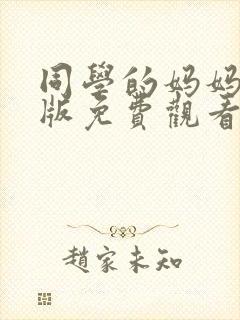 同學的妈妈
版免費觀看
趙家未知